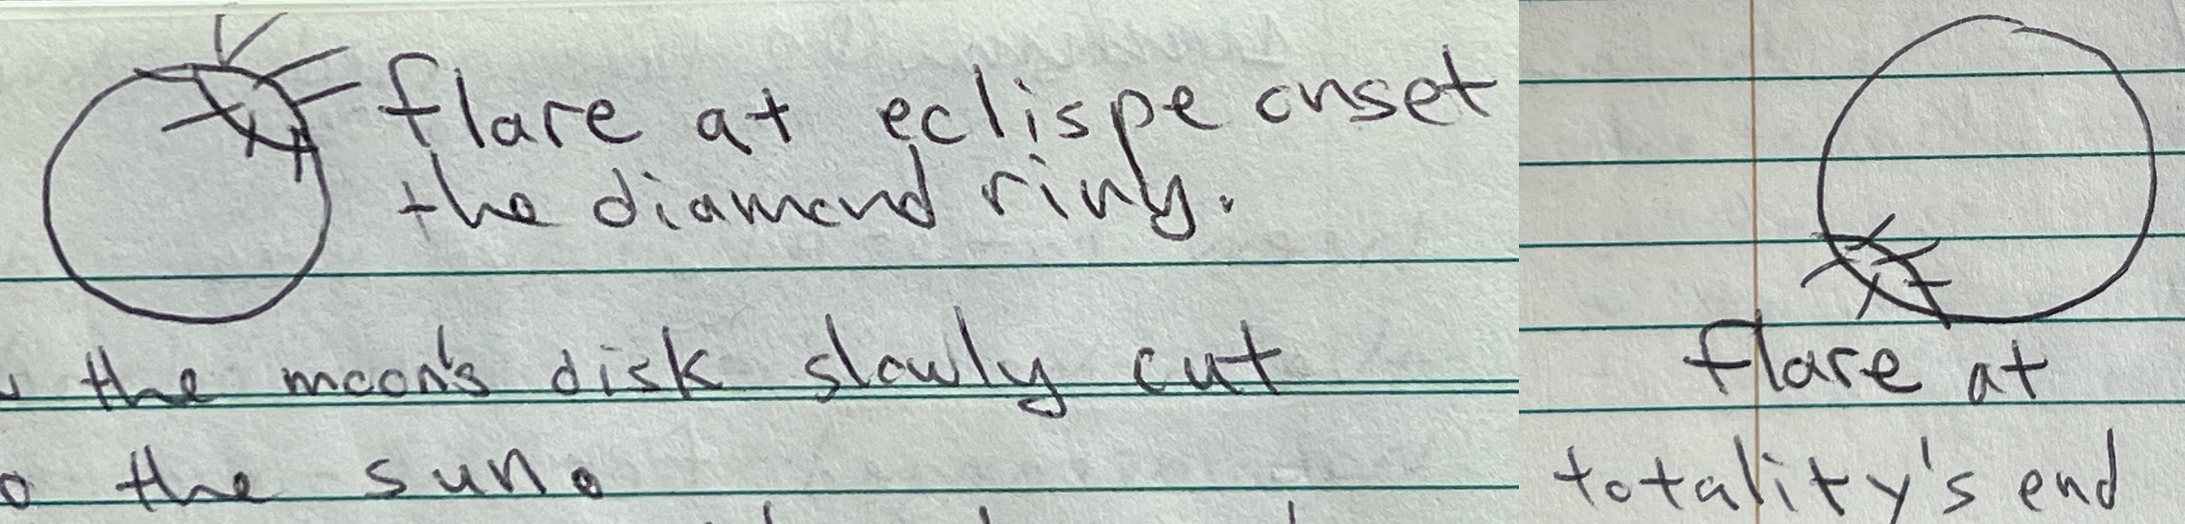 flare at eclispe onset
the diamond ring.
the moon's disk slowly cut
the sun.
flare at
totality's end